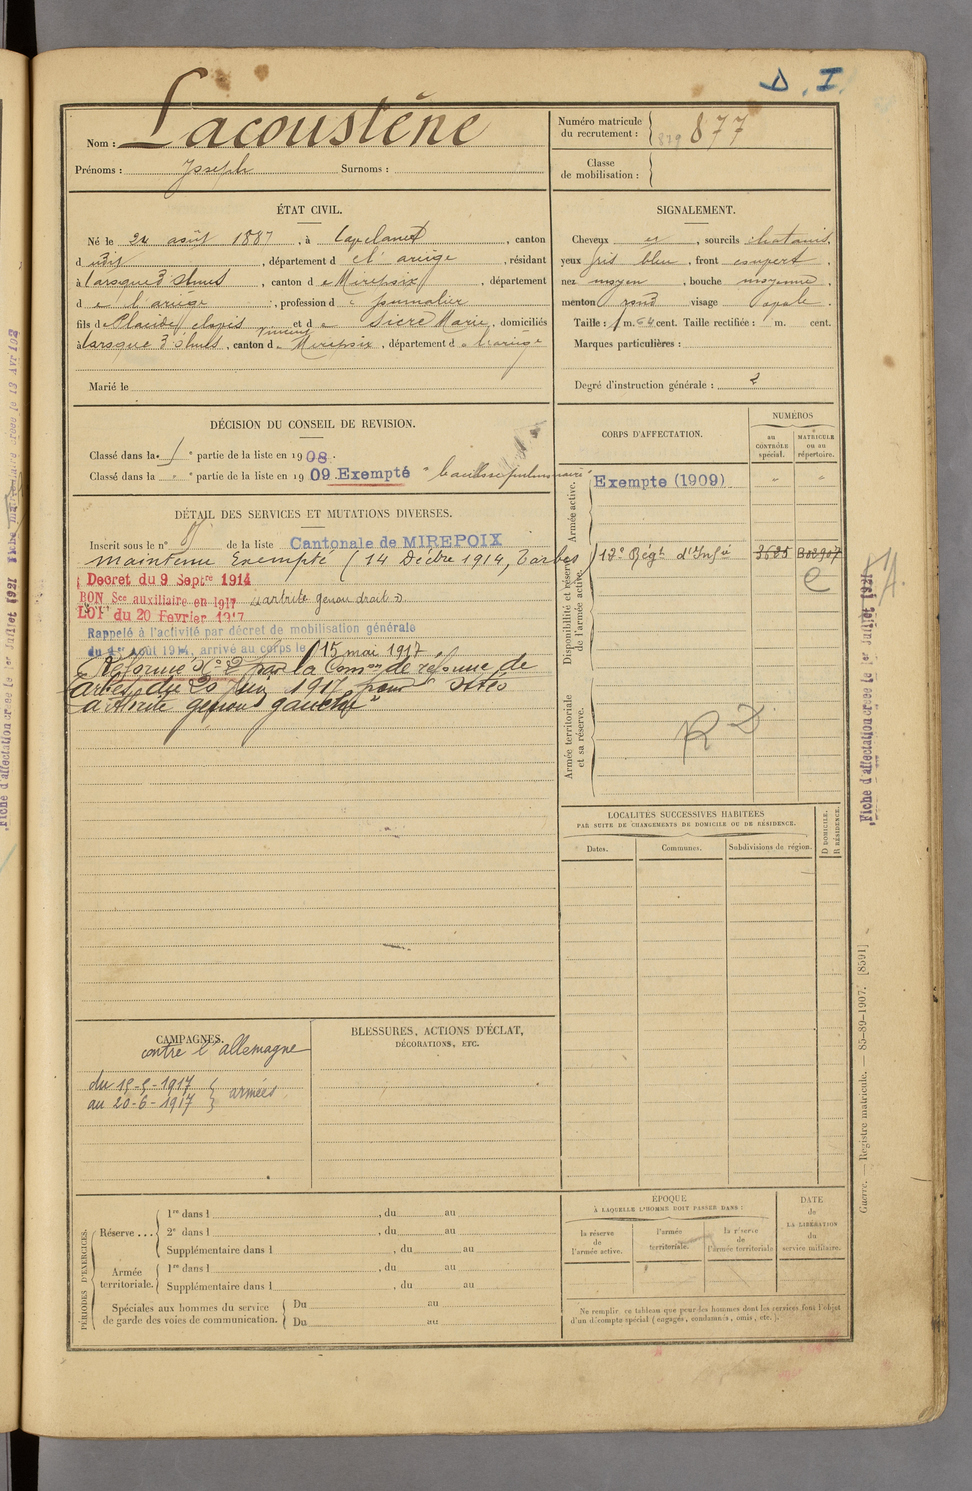 D. I.
Nom : Lacoustène
Prénoms : Joseph Surnoms :
Numéro matricule du recrutement : 879 877
Classe de mobilisation :
ÉTAT CIVIL.
Né le 24 août 1887, à Lavelanet, canton
d udit, département d e l'ariège, résidant
à , canton d e Mirepoix, département
d e l'ariège, profession d e Journalier
fils d e Placide clovis et d e Sicre Marie, domiciliés
à , canton d e Mirepoix, département d e l'ariège
Marié le
SIGNALEMENT.
Cheveux et, sourcils chatains,
yeux gris bleu, front couvert,
nez moyen, bouche moyenne,
menton rond visage ovale.
Taille : 1 m. 64 cent. Taille rectifiée : m. cent.
Marques particulières :
Degré d'instruction générale : 2
DÉCISION DU CONSEIL DE REVISION.
Classé dans la 1e partie de la liste en 1908.
Classé dans la " partie de la liste en 1909 Exempté
DÉTAIL DES SERVICES ET MUTATIONS DIVERSES.
Inscrit sous le n° de la liste Cantonale de MIREPOIX
Maintenu Exempté (14 Décbre 1914, Tarbes)
Decret du 9 Septre 1914
BON Sce auxiliaire en 1917 "arthrite genou droit"
LOI du 20 Fevrier 1917
Rappelé à l'activité par décret de mobilisation générale
du 1er Août 1914, arrivé au corps le 15 mai 1917
Réformé N° 2 par la Comon de réforme de
Tarbes du 20 Juin 1917 pour
genou gauche"
CORPS D'AFFECTATION.
NUMÉROS
au CONTRÔLE spécial.
MATRICULE ou au répertoire.
Armée active.
Exempte (1909)
Disponibilité et réserve de l'armée active.
12e Régt d'Infie
C
Armée territoriale et sa réserve.
R D
LOCALITÉS SUCCESSIVES HABITÉES
PAR SUITE DE CHANGEMENTS DE DOMICILE OU DE RÉSIDENCE.
Dates. Communes. Subdivisions de région.
D DOMICILE. R RÉSIDENCE.
CAMPAGNES.
contre l'allemagne
du 15-5-1917
au 20-6-1917 } armées
BLESSURES, ACTIONS D'ÉCLAT,
DÉCORATIONS, ETC.
PÉRIODES D'EXERCICES.
Réserve ... 1re dans l , du au
2e dans l , du au
Supplémentaire dans l , du au
Armée territoriale. 1re dans l , du au
Supplémentaire dans l , du au
Spéciales aux hommes du service de garde des voies de communication. Du au
Du au
EPOQUE
À LAQUELLE L'HOMME DOIT PASSER DANS :
la réserve de l'armée active.
l'armée territoriale.
la réserve de l'armée territoriale
DATE de LA LIBÉRATION du service militaire.
Ne remplir ce tableau que pour les hommes dont les services font l'objet
d'un décompte spécial (engagés, condamnés, omis, etc.).
Fiche d'affectation créée le 1er Juillet 1921
Guerre. — Registre matricule. — 85-89-1907. [8591]